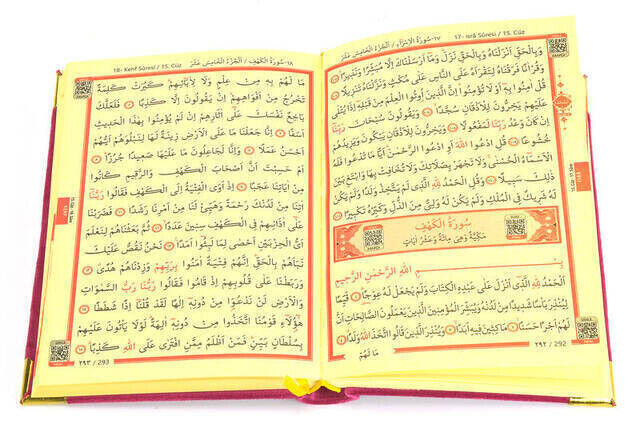 ١٧-سُورَةُ الْإِسْرَاءِ / اَلْجُزْءُ الْخَامِسُ عَشَرَ 17- İsrâ Sûresi / 15. Cüz
وَبِالْحَقِّ اَنْزَلْنَاهُ وَبِالْحَقِّ نَزَلَ وَمَا اَرْسَلْنَاكَ اِلَّا مُبَشِّرًا وَنَذِيرًا
وَقُرْاٰنًا فَرَقْنَاهُ لِتَقْرَاَهُ عَلَى النَّاسِ عَلٰى مُكْثٍ وَنَزَّلْنَاهُ تَنْزِيلًا
قُلْ اٰمِنُوا بِهٖ اَوْ لَا تُؤْمِنُوا اِنَّ الَّذِينَ اُوتُوا الْعِلْمَ مِنْ قَبْلِهٖ اِذَا يُتْلٰى
عَلَيْهِمْ يَخِرُّونَ لِلْاَذْقَانِ سُجَّدًا وَيَقُولُونَ سُبْحَانَ رَبِّنَا
اِنْ كَانَ وَعْدُ رَبِّنَا لَمَفْعُولًا وَيَخِرُّونَ لِلْاَذْقَانِ يَبْكُونَ وَيَزِيدُهُمْ
خُشُوعًا قُلِ ادْعُوا اللّٰهَ اَوِ ادْعُوا الرَّحْمٰنَ اَيًّا مَا تَدْعُوا فَلَهُ
الْاَسْمَاءُ الْحُسْنٰى وَلَا تَجْهَرْ بِصَلَاتِكَ وَلَا تُخَافِتْ بِهَا وَابْتَغِ بَيْنَ
ذٰلِكَ سَبِيلًا وَقُلِ الْحَمْدُ لِلّٰهِ الَّذِي لَمْ يَتَّخِذْ وَلَدًا وَلَمْ يَكُنْ
لَهُ شَرِيكٌ فِي الْمُلْكِ وَلَمْ يَكُنْ لَهُ وَلِيٌّ مِنَ الذُّلِّ وَكَبِّرْهُ تَكْبِيرًا
سُورَةُ الْكَهْفِ
مَكِّيَّةٌ وَهِيَ مِائَةٌ وَعَشْرُ اٰيَاتٍ
بِسْمِ اللّٰهِ الرَّحْمٰنِ الرَّحِيمِ
اَلْحَمْدُ لِلّٰهِ الَّذِي اَنْزَلَ عَلٰى عَبْدِهِ الْكِتَابَ وَلَمْ يَجْعَلْ لَهُ عِوَجًا قَيِّمًا
لِيُنْذِرَ بَاْسًا شَدِيدًا مِنْ لَدُنْهُ وَيُبَشِّرَ الْمُؤْمِنِينَ الَّذِينَ يَعْمَلُونَ الصَّالِحَاتِ اَنَّ
لَهُمْ اَجْرًا حَسَنًا مَاكِثِينَ فِيهِ اَبَدًا وَيُنْذِرَ الَّذِينَ قَالُوا اتَّخَذَ اللّٰهُ وَلَدًا
مَا لَهُمْ
٢٩٢ / 292
١٨-سُورَةُ الْكَهْفِ / اَلْجُزْءُ الْخَامِسُ عَشَرَ 18- Kehf Sûresi / 15. Cüz
مَا لَهُمْ بِهٖ مِنْ عِلْمٍ وَلَا لِاٰبَائِهِمْ كَبُرَتْ كَلِمَةً
تَخْرُجُ مِنْ اَفْوَاهِهِمْ اِنْ يَقُولُونَ اِلَّا كَذِبًا فَلَعَلَّكَ
بَاخِعٌ نَفْسَكَ عَلٰى اٰثَارِهِمْ اِنْ لَمْ يُؤْمِنُوا بِهٰذَا الْحَدِيثِ
اَسَفًا اِنَّا جَعَلْنَا مَا عَلَى الْاَرْضِ زِينَةً لَهَا لِنَبْلُوَهُمْ اَيُّهُمْ
اَحْسَنُ عَمَلًا وَاِنَّا لَجَاعِلُونَ مَا عَلَيْهَا صَعِيدًا جُرُزًا
اَمْ حَسِبْتَ اَنَّ اَصْحَابَ الْكَهْفِ وَالرَّقِيمِ كَانُوا
مِنْ اٰيَاتِنَا عَجَبًا اِذْ اَوَى الْفِتْيَةُ اِلَى الْكَهْفِ فَقَالُوا رَبَّنَا
اٰتِنَا مِنْ لَدُنْكَ رَحْمَةً وَهَيِّئْ لَنَا مِنْ اَمْرِنَا رَشَدًا فَضَرَبْنَا
عَلٰى اٰذَانِهِمْ فِي الْكَهْفِ سِنِينَ عَدَدًا ثُمَّ بَعَثْنَاهُمْ لِنَعْلَمَ
اَيُّ الْحِزْبَيْنِ اَحْصٰى لِمَا لَبِثُوا اَمَدًا نَحْنُ نَقُصُّ عَلَيْكَ
نَبَاَهُمْ بِالْحَقِّ اِنَّهُمْ فِتْيَةٌ اٰمَنُوا بِرَبِّهِمْ وَزِدْنَاهُمْ هُدًى
وَرَبَطْنَا عَلٰى قُلُوبِهِمْ اِذْ قَامُوا فَقَالُوا رَبُّنَا رَبُّ السَّمٰوَاتِ
وَالْاَرْضِ لَنْ نَدْعُوَا مِنْ دُونِهٖ اِلٰهًا لَقَدْ قُلْنَا اِذًا شَطَطًا
هٰؤُلَاءِ قَوْمُنَا اتَّخَذُوا مِنْ دُونِهٖ اٰلِهَةً لَوْلَا يَاْتُونَ عَلَيْهِمْ
بِسُلْطَانٍ بَيِّنٍ فَمَنْ اَظْلَمُ مِمَّنِ افْتَرٰى عَلَى اللّٰهِ كَذِبًا
٢٩٣ / 293